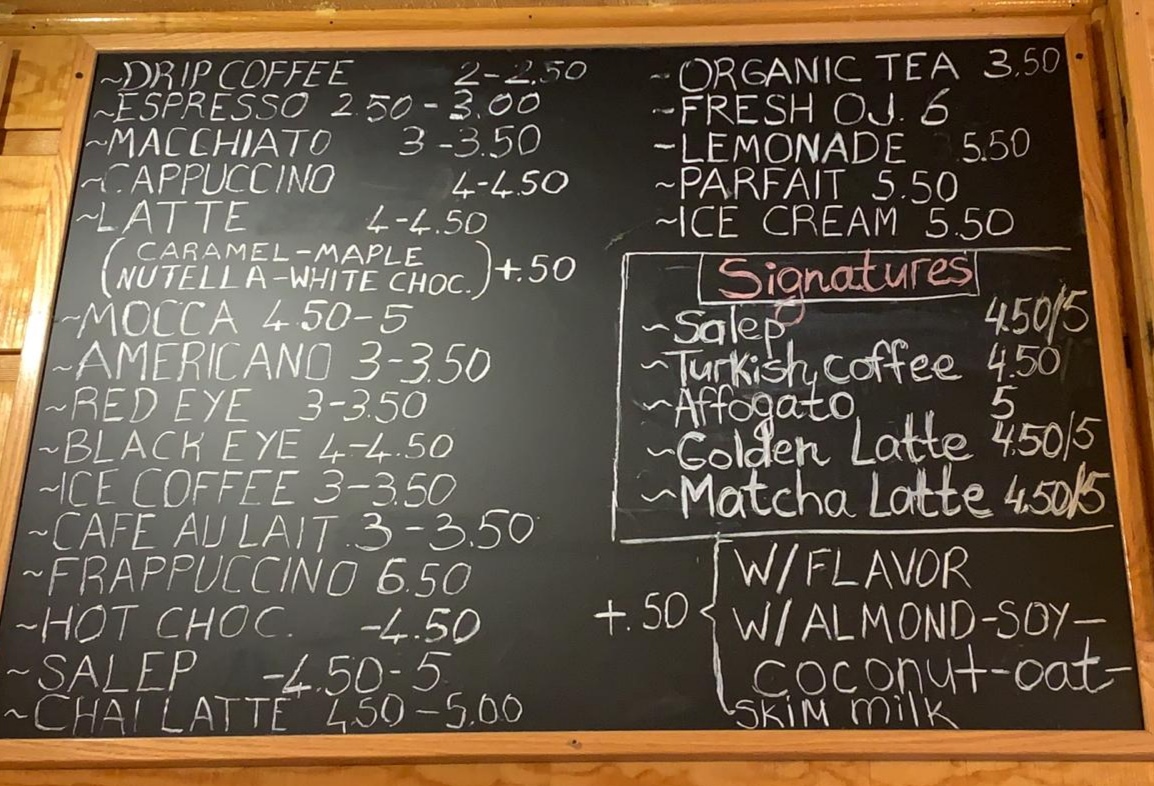 ~DRIP COFFEE 2-2.50
~ESPRESSO 2.50-3.00
~MACCHIATO 3-3.50
~CAPPUCCINO 4-4.50
~LATTE 4-4.50
(CARAMEL-MAPLE
NUTELLA-WHITE CHOC.) +.50
~MOCCA 4.50-5
~AMERICANO 3-3.50
~RED EYE 3-3.50
~BLACK EYE 4-4.50
~ICE COFFEE 3-3.50
~CAFE AU LAIT 3-3.50
~FRAPPUCCINO 6.50
~HOT CHOC. -4.50
~SALEP -4.50-5
~CHAI LATTE 4.50-5.00
~ORGANIC TEA 3.50
~FRESH OJ. 6
~LEMONADE 5.50
~PARFAIT 5.50
~ICE CREAM 5.50
Signatures
~Salep 4.50/5
~Turkish coffee 4.50
~Affogato 5
~Golden Latte 4.50/5
~Matcha Latte 4.50/5
W/FLAVOR
+.50 { W/ALMOND-SOY-
coconut-oat-
SKIM milk